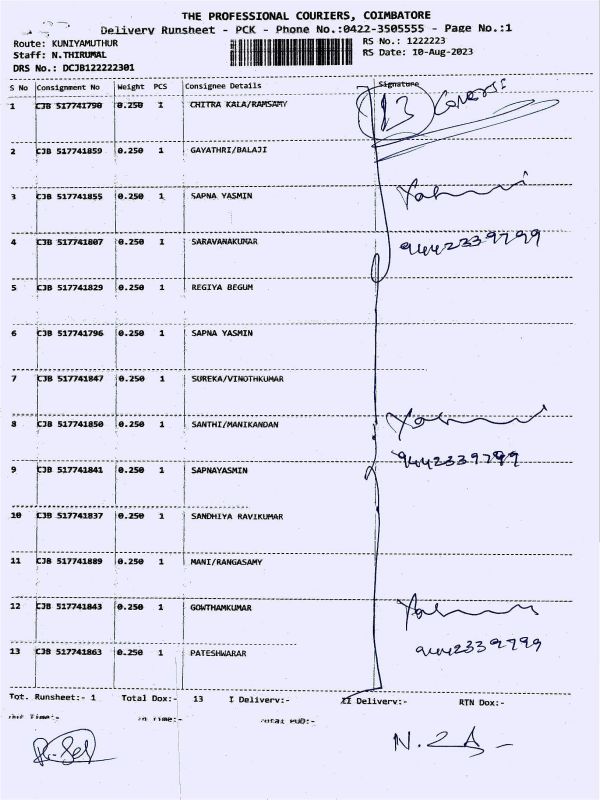 THE PROFESSIONAL COURIERS, COIMBATORE
Delivery Runsheet - PCK - Phone No.:0422-3505555 - Page No.:1
Route: KUNIYAMUTHUR RS No.: 1222223
Staff: N.THIRUMAL RS Date: 10-Aug-2023
DRS No.: DCJB122222301
S No Consignment No Weight PCS Consignee Details Signature
1 CJB 517741790 0.250 1 CHITRA KALA/RAMSAMY 13 Covers:
2 CJB 517741859 0.250 1 GAYATHRI/BALAJI
3 CJB 517741855 0.250 1 SAPNA YASMIN
4 CJB 517741807 0.250 1 SARAVANAKUMAR 9442339799
5 CJB 517741829 0.250 1 REGIYA BEGUM
6 CJB 517741796 0.250 1 SAPNA YASMIN
7 CJB 517741847 0.250 1 SUREKA/VINOTHKUMAR
8 CJB 517741850 0.250 1 SANTHI/MANIKANDAN
9 CJB 517741841 0.250 1 SAPNAYASMIN 9442339799
10 CJB 517741837 0.250 1 SANDHIYA RAVIKUMAR
11 CJB 517741889 0.250 1 MANI/RANGASAMY
12 CJB 517741843 0.250 1 GOWTHAMKUMAR
13 CJB 517741863 0.250 1 PATESHWARAR 9442339799
Tot. Runsheet:- 1 Total Dox:- 13 I Delivery:- II Delivery:- RTN Dox:-
Out Time:- In Time:- Total POD:-